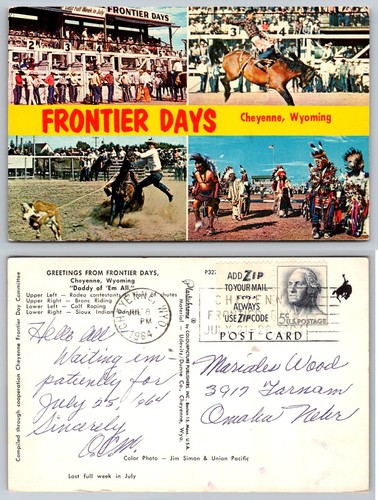 Last Full Week in July FRONTIER DAYS
2 3 4
3 4
FRONTIER DAYS
Cheyenne, Wyoming
GREETINGS FROM FRONTIER DAYS,
Cheyenne, Wyoming
"Daddy of 'Em All"
Upper Left - Rodeo contestants in front of chutes
Upper Right - Bronc Riding
Lower Left - Calf Roping
Lower Right - Sioux Indian
Compiled through cooperation Cheyenne Frontier Day Committee
CHEYENNE WYO.
PM
1964
ADD ZIP
TO YOUR MAIL
ALWAYS
USE ZIP CODE
CHEYENNE
5¢ U.S. POSTAGE
POST CARD
Hello All
Waiting im
patiently for
July 25, '64
Sincerely
Mariales Wood
3917 Farnam
Omaha Nebr
Color Photo - Jim Simon & Union Pacific
Last full week in July